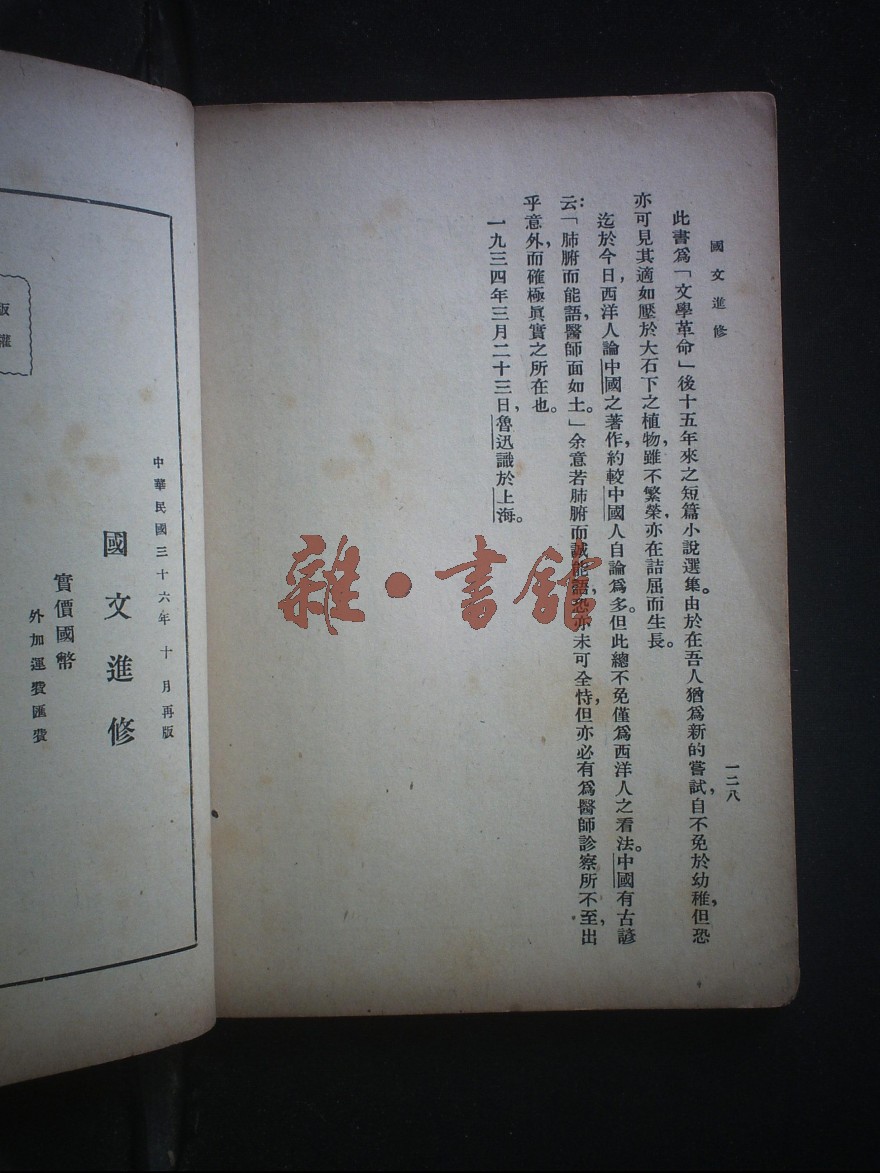 國文進修
一二八
此書爲「文學革命」後十五年來之短篇小說選集。由於在吾人猶爲新的嘗試，自不免於幼稚，但恐
亦可見其適如壓於大石下之植物，雖不繁榮，亦在詰屈而生長。
迄於今日，西洋人論中國之著作，約較中國人自論爲多。但此總不免僅爲西洋人之看法。中國有古諺
云：「肺腑而能語，醫師面如土。」余意若肺腑而誠能語，恐亦未可全恃，但亦必有爲醫師診察所不至，出
乎意外，而確極眞實之所在也。
一九三四年三月二十三日，魯迅識於上海。
雜·書館
中華民國三十六年十月再版
國文進修
實價國幣
外加運費匯費
版權